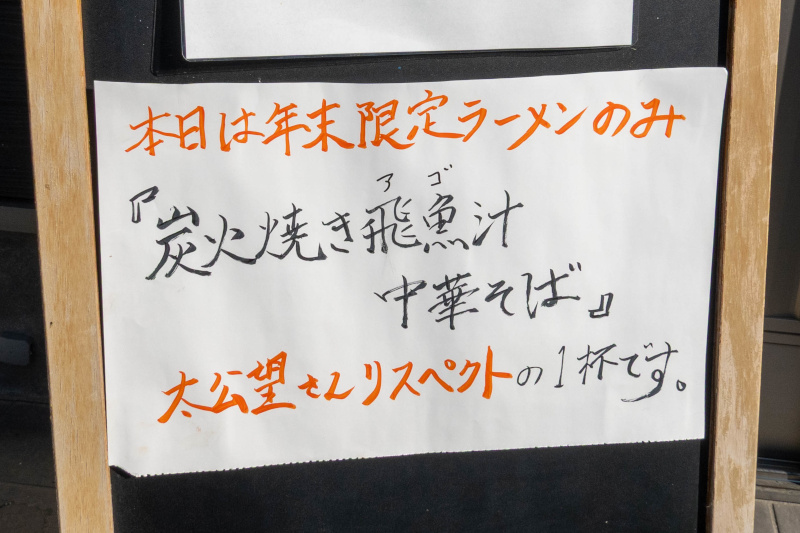 本日は年末限定ラーメンのみ
アゴ
『炭火焼き飛魚汁
中華そば』
太公望さんリスペクトの1杯です。